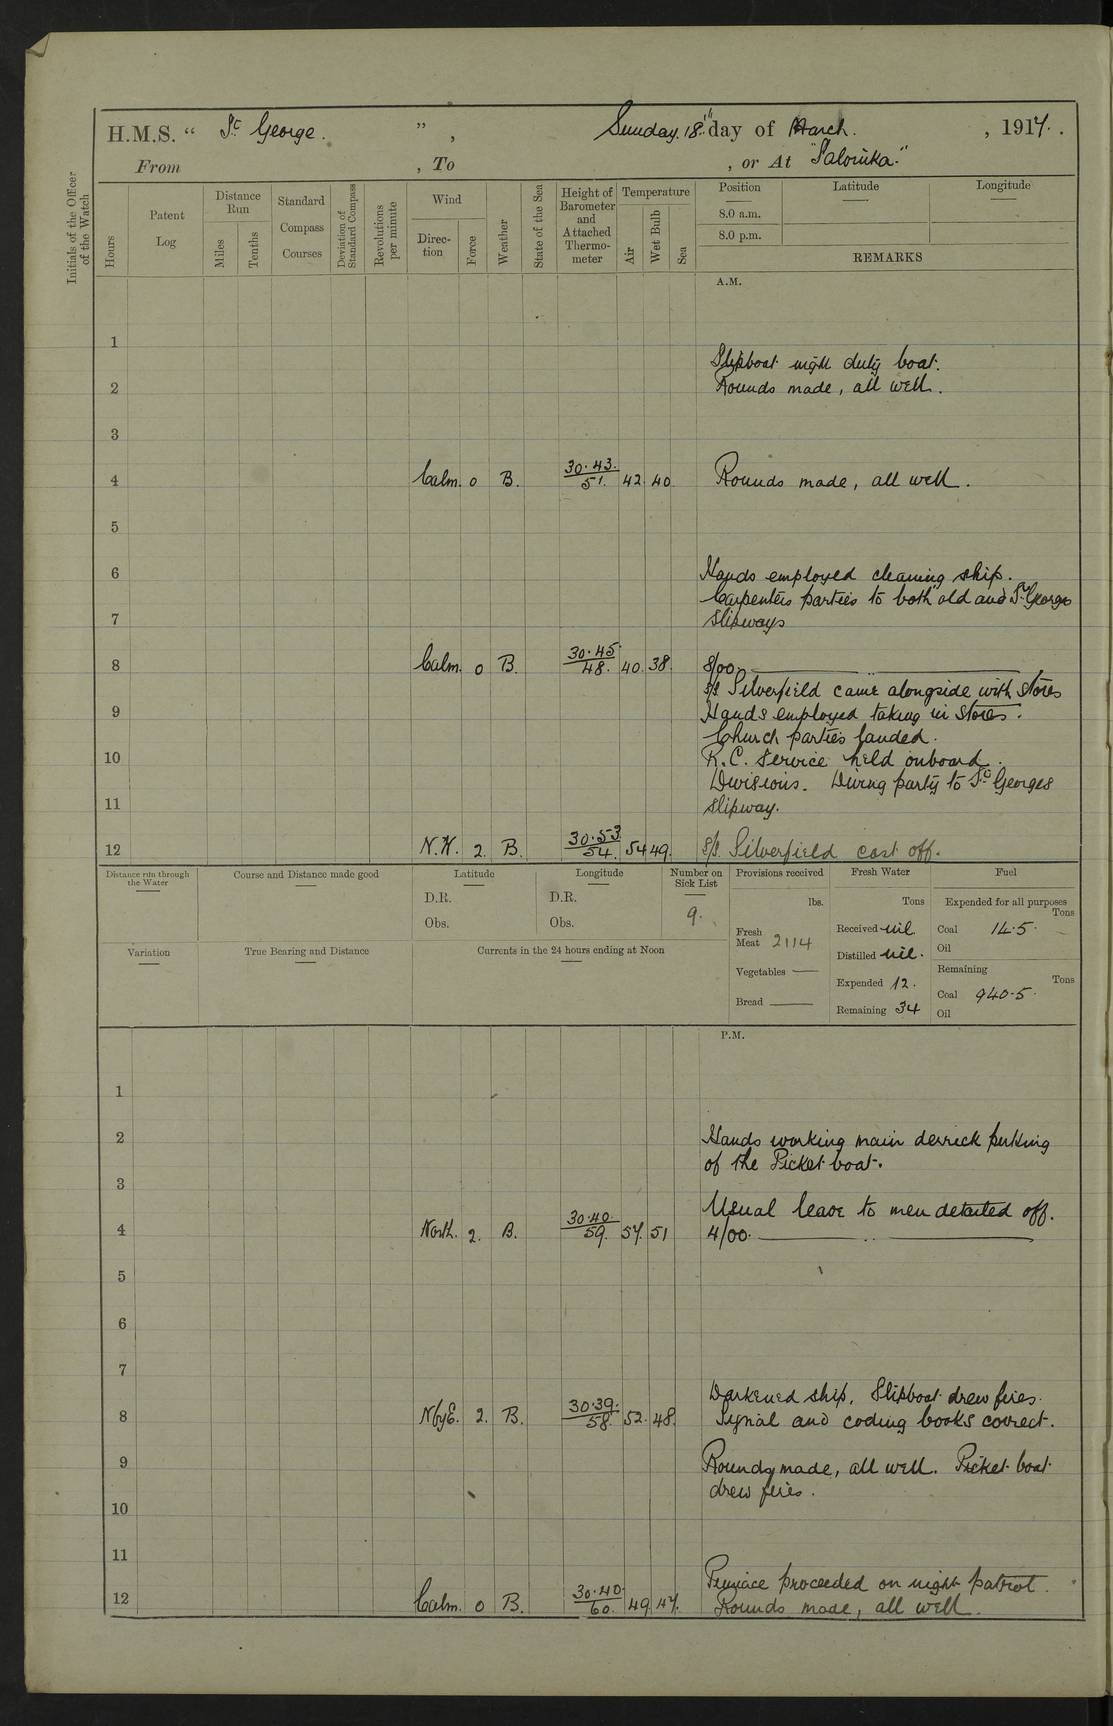 H.M.S. “ St George. ” , Sunday 18th day of March. , 1917.
From , To , or At "Salonika."
Initials of the Officer of the Watch
Hours
Patent Log
Distance Run
Miles
Tenths
Standard Compass Courses
Deviation of Standard Compass
Revolutions per minute
Wind
Direction
Force
Weather
State of the Sea
Height of Barometer and Attached Thermometer
Temperature
Air
Wet Bulb
Sea
Position Latitude Longitude
8.0 a.m.
8.0 p.m.
REMARKS
A.M.
1
Slipboat night duty boat.
2 Rounds made, all well.
3
4 Calm. 0 B. 30.43. 51. 42. 40. Rounds made, all well.
5
6 Hands employed cleaning ship.
Carpenters parties to both old and St. Georges
7 slipways
8 Calm. 0 B. 30.45. 48. 40. 38. 8/00.
s/s Silverfield came alongside with stores
9 Hands employed taking in stores.
Church parties landed.
10 R.C. service held onboard.
Divisions. Diving party to St Georges
11 slipway.
12 N.W. 2. B. 30.53. 54. 54 49. s/s. Silverfield cast off.
Distance run through the Water
Course and Distance made good
Latitude
D.R.
Obs.
Longitude
D.R.
Obs.
Number on Sick List
9.
Provisions received
lbs.
Fresh Meat 2114
Vegetables —
Bread —
Fresh Water
Tons
Received nil
Distilled nil.
Expended 12.
Remaining 34
Fuel
Expended for all purposes
Tons
Coal 14.5.
Oil
Remaining
Tons
Coal 940.5.
Oil
Variation
True Bearing and Distance
Currents in the 24 hours ending at Noon
P.M.
1
2 Hands working main derrick
of the Picket boat.
3
Usual leave to men detailed off.
4 North. 2. B. 30.40. 59. 57. 51 4/00.
5
6
7
Darkened ship. Slipboat drew fires.
8 NbyE. 2. B. 30.39. 58. 52. 48. Signal and coding books correct.
9 Rounds made, all well. Picket boat
drew fires.
10
11
Pinnace proceeded on night patrol.
12 Calm. 0 B. 30.40. 60. 49. 47. Rounds made, all well.